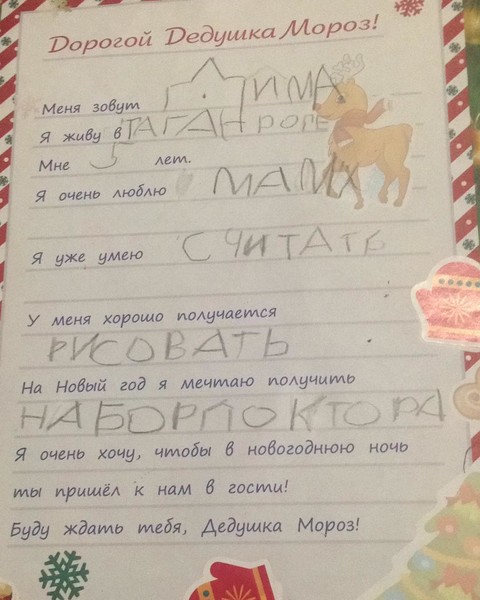 Дорогой Дедушка Мороз!
Меня зовут ДИМА
Я живу в ТАГАНРОГЕ
Мне лет.
Я очень люблю МАМУ
Я уже умею СЧИТАТЬ
У меня хорошо получается
РИСОВАТЬ
На Новый год я мечтаю получить
НАБОРПОКТОРА
Я очень хочу, чтобы в новогоднюю ночь
ты пришёл к нам в гости!
Буду ждать тебя, Дедушка Мороз!